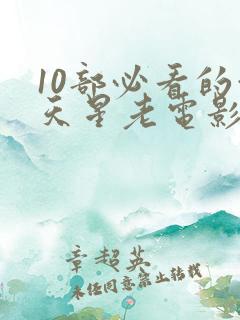 10部必看的
天星老电影
章超英
未经同意禁止转载